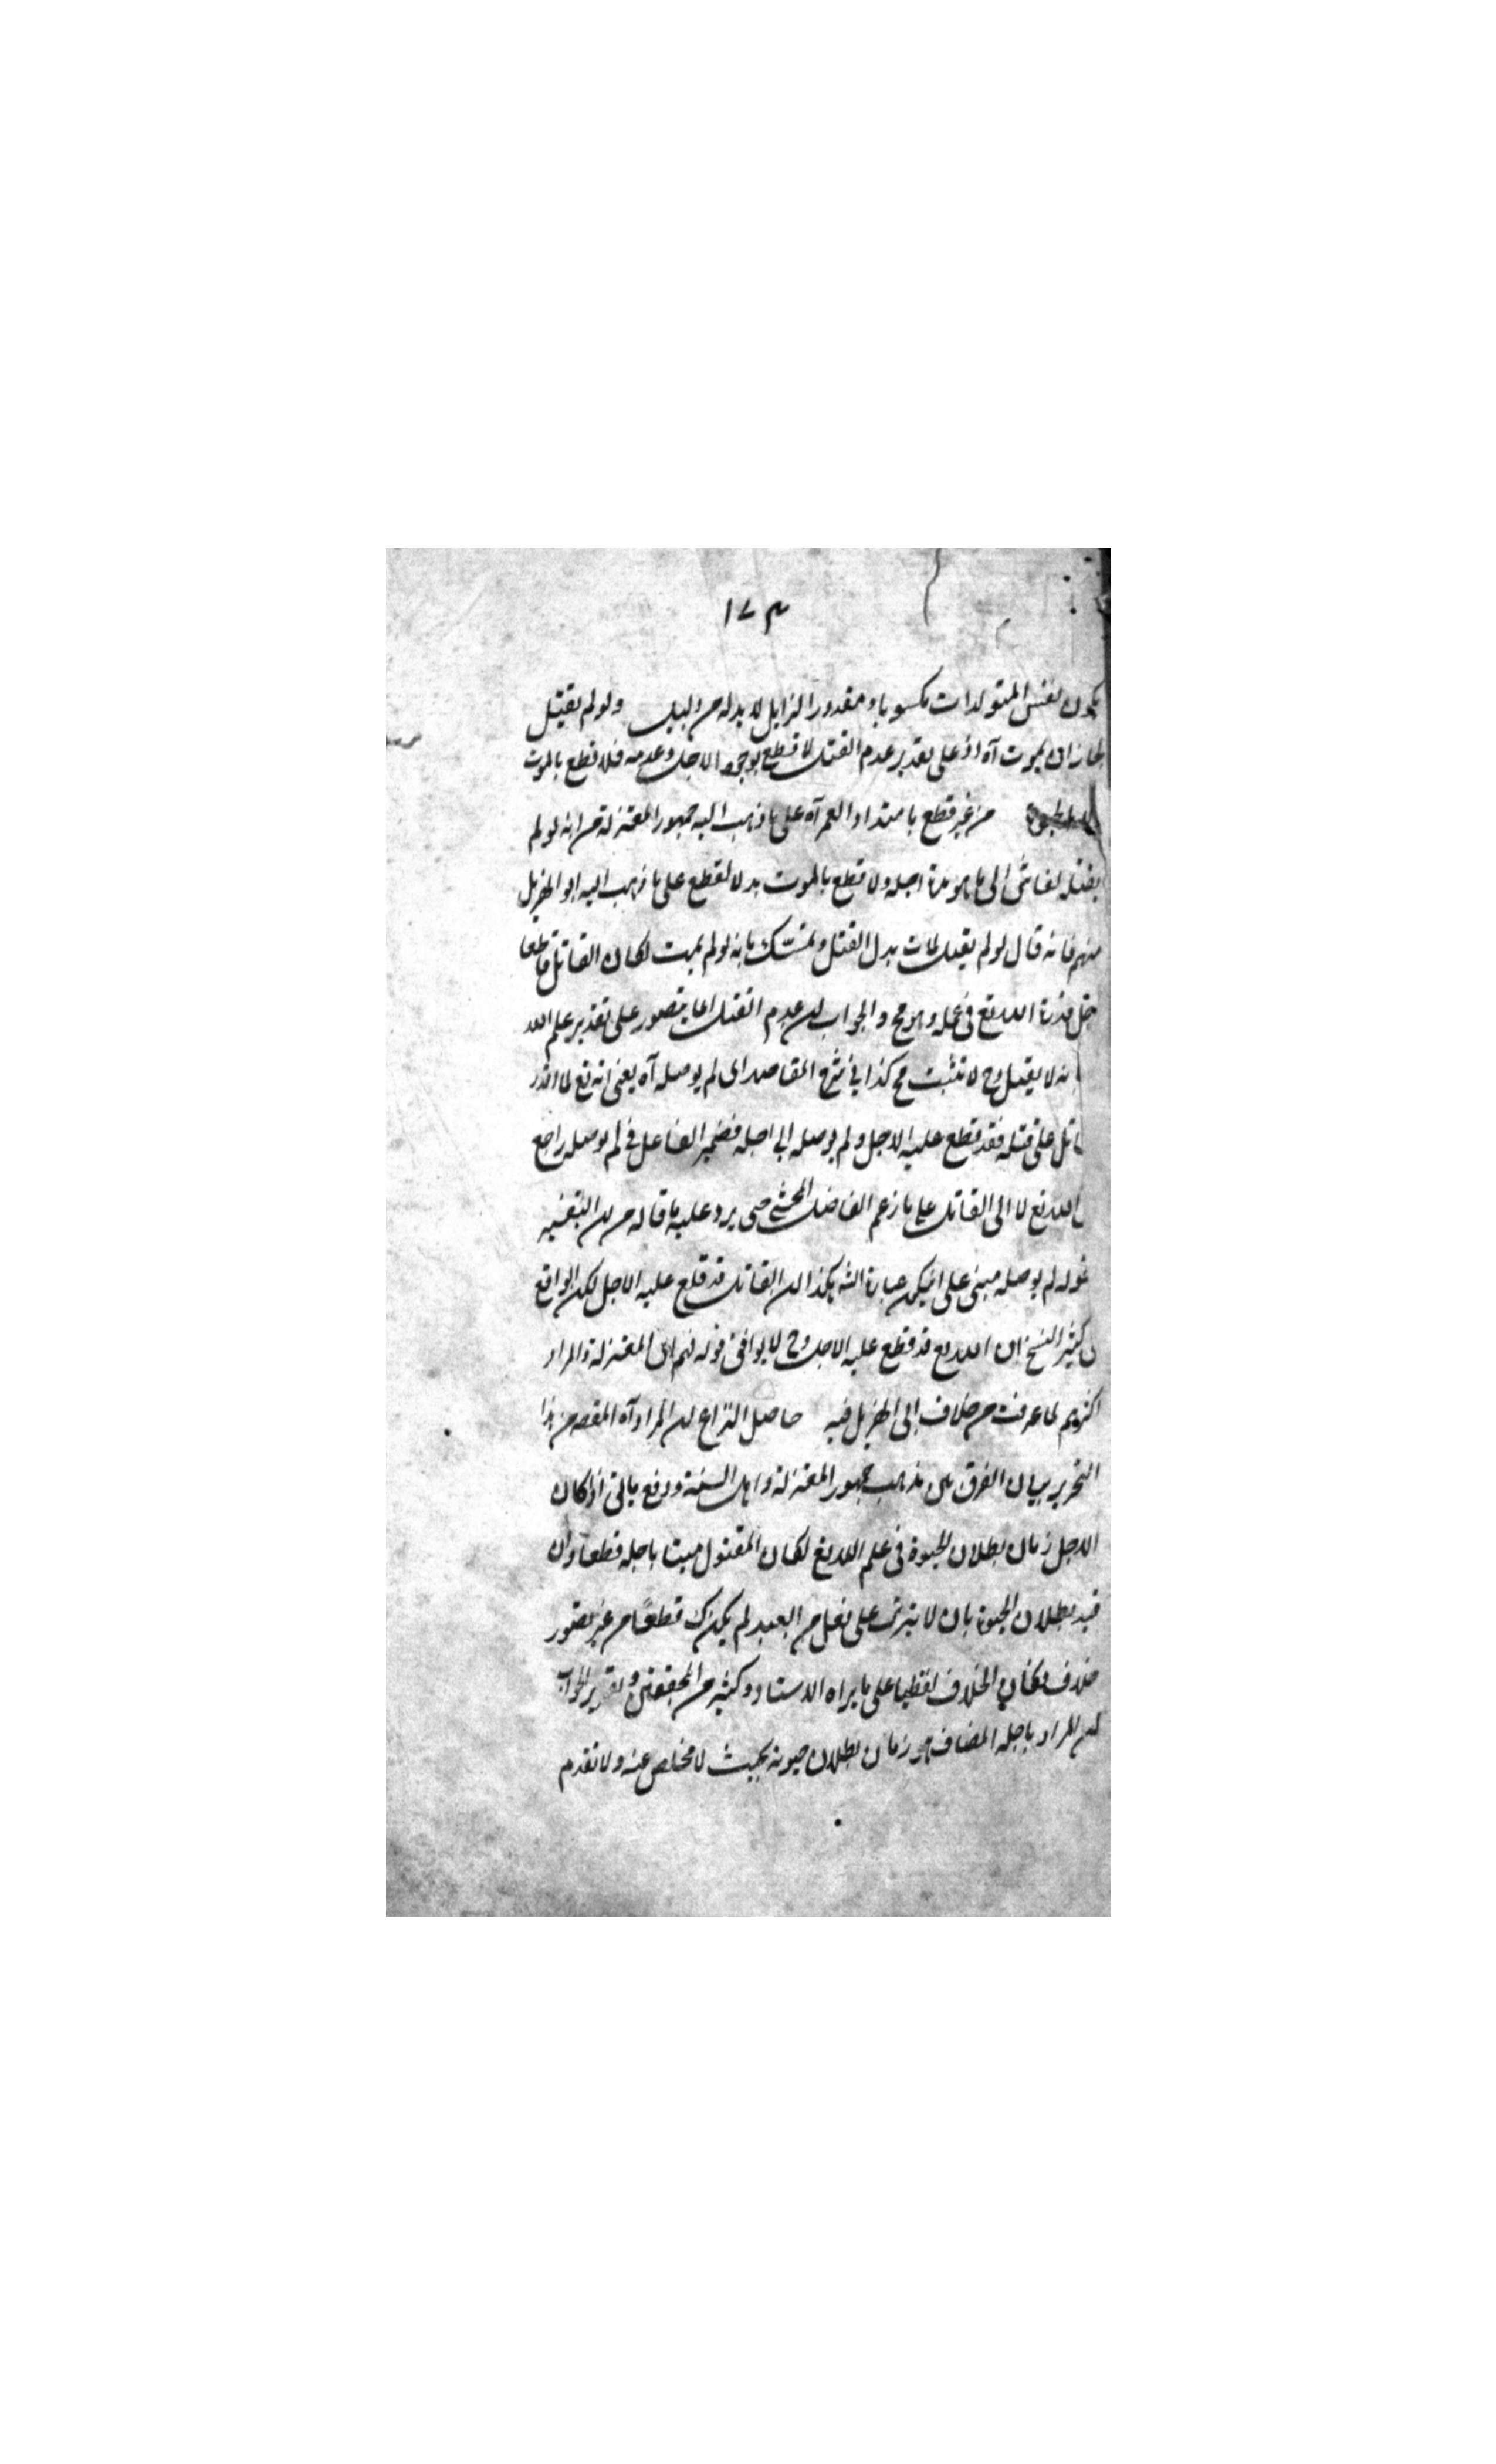 ١٧٣
يكون نفس المتولدات مكسوبا ومقدورا لزايل لا بد له من دليل ولو لم يقتل
لجاز ان يموت آه اذ على تقدير عدم القتل لا قطع بوجود الاجل وعدمه فلا قطع بالموت
من غير قطع بامتداد العمر آه على ما ذهب اليه جمهور المعتزلة من انه لو لم
يقتل لعاش الى ما هو مدة اجله ولا قطع بالموت بدلا لقطع على ما ذهب اليه ابو الهزيل
منهم فانه قال لو لم يقتل لمات بدل القتل وتمسّك بانه لو لم يمت لكان القاتل قاطعا
قدرة الله تع في عمله وهو مح والجواب ان عدم القتل انما يتصور على تقدير علم الله
انه لا يقتل وح لا تثبت مح كذا في شرح المقاصد اى لم يوصله آه يعنى انه تع لما اقدر
اتل على قتله فقد قطع عليه الاجل ولم يوصله الى اجله فضمير الفاعل في لم يوصله راجع
الله تع لا الى القاتل على ما زعم الفاضل المحشى حتى يرد عليه ما قاله من ان التفسير
بقوله لم يوصله مبنى على ان يكن عبارة الشه هكذا ان القاتل قد قطع عليه الاجل لكن الواقع
فى كثير النسخ ان الله تع قد قطع عليه الاجل وح لا يوافق قوله فهم اى المعتزلة والمراد
اكثرهم لما عرفت من خلاف ابى الهزيل فيه حاصل النزاع ان المراد آه المقصه من هذا
التحرير بيان الفرق بين مذهب جمهور المعتزلة واهل السنة ودفع ما لى اذ كان
الاجل زمان بطلان الحيوة فى علم الله تع لكان المقتول ميتا باجله قطعا وان
قيد بطلان الحيوة بان لا يترتب على فعل من العبد لم يكن ك قطعًا من غير تصور
خلاف فكان الخلاف لفظيا على ما يراه الاستاد وكثير من المحققين وتقرير الجواب
ان المراد باجله المضاف هو زمان بطلان حيوته بحيث لا مخلص عنه ولا تقدم